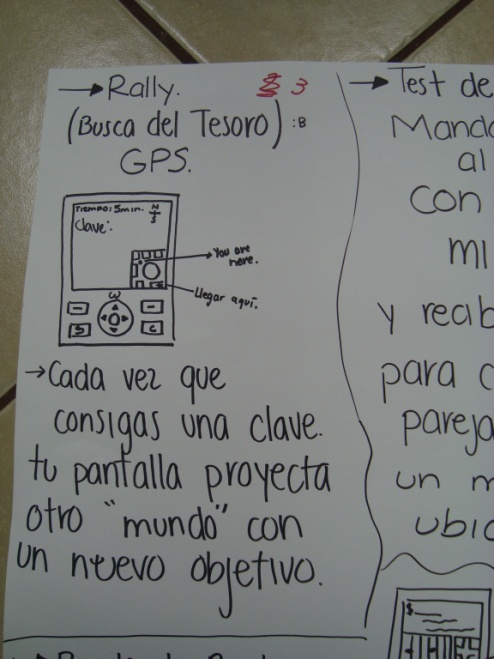 → Rally. 3
(Busca del Tesoro) :B
GPS.
Tiempo: 5min. N
S
Clave:
You are
here.
Llegar aquí.
S C
→ Cada vez que
consigas una clave.
tu pantalla proyecta
otro "mundo" con
un nuevo objetivo.
→ Test de
Manda
al
con
mi
y recib
para c
pareja
un m
ubic
$